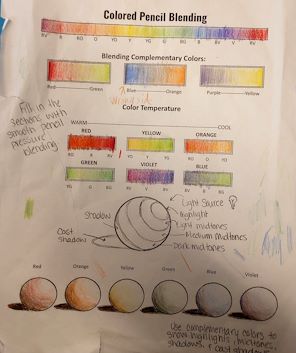 Colored Pencil Blending
RV R RO O YO Y YG G BG B BV V RV
Blending Complementary Colors:
Red Green Blue Orange Purple Yellow
Fill in the
sections with
smooth pencil
pressure
blending
Color Temperature
WARM COOL
RED YELLOW ORANGE
RO R RV YO Y YG RO O YO
GREEN VIOLET BLUE
YG G BG
Light Source
Highlight
Light midtones
Medium midtones
Dark midtones
Shadow
Cast
Shadow
Red Orange Yellow Green Blue Violet
Use complementary colors to
show highlights, midtones,
shadows, & cast shadows